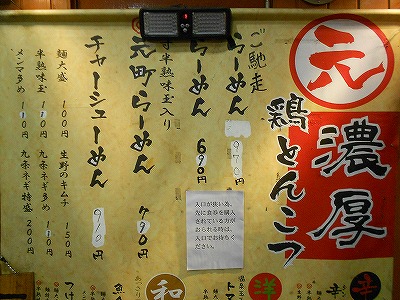 元
濃厚
鶏とんこつ
ご馳走
らーめん 970円
らーめん 690円
半熟味玉入り
元町らーめん 790円
チャーシューめん 910円
麺大盛 100円
半熟味玉 110円
メンマ多め 110円
生野のキムチ 150円
九条ネギ多め 110円
九条ネギ特盛 200円
入口が狭い為、
先に食券を購入
されている方が
おられる時は、
入口でお待ちく
ださい。
和
洋
辛